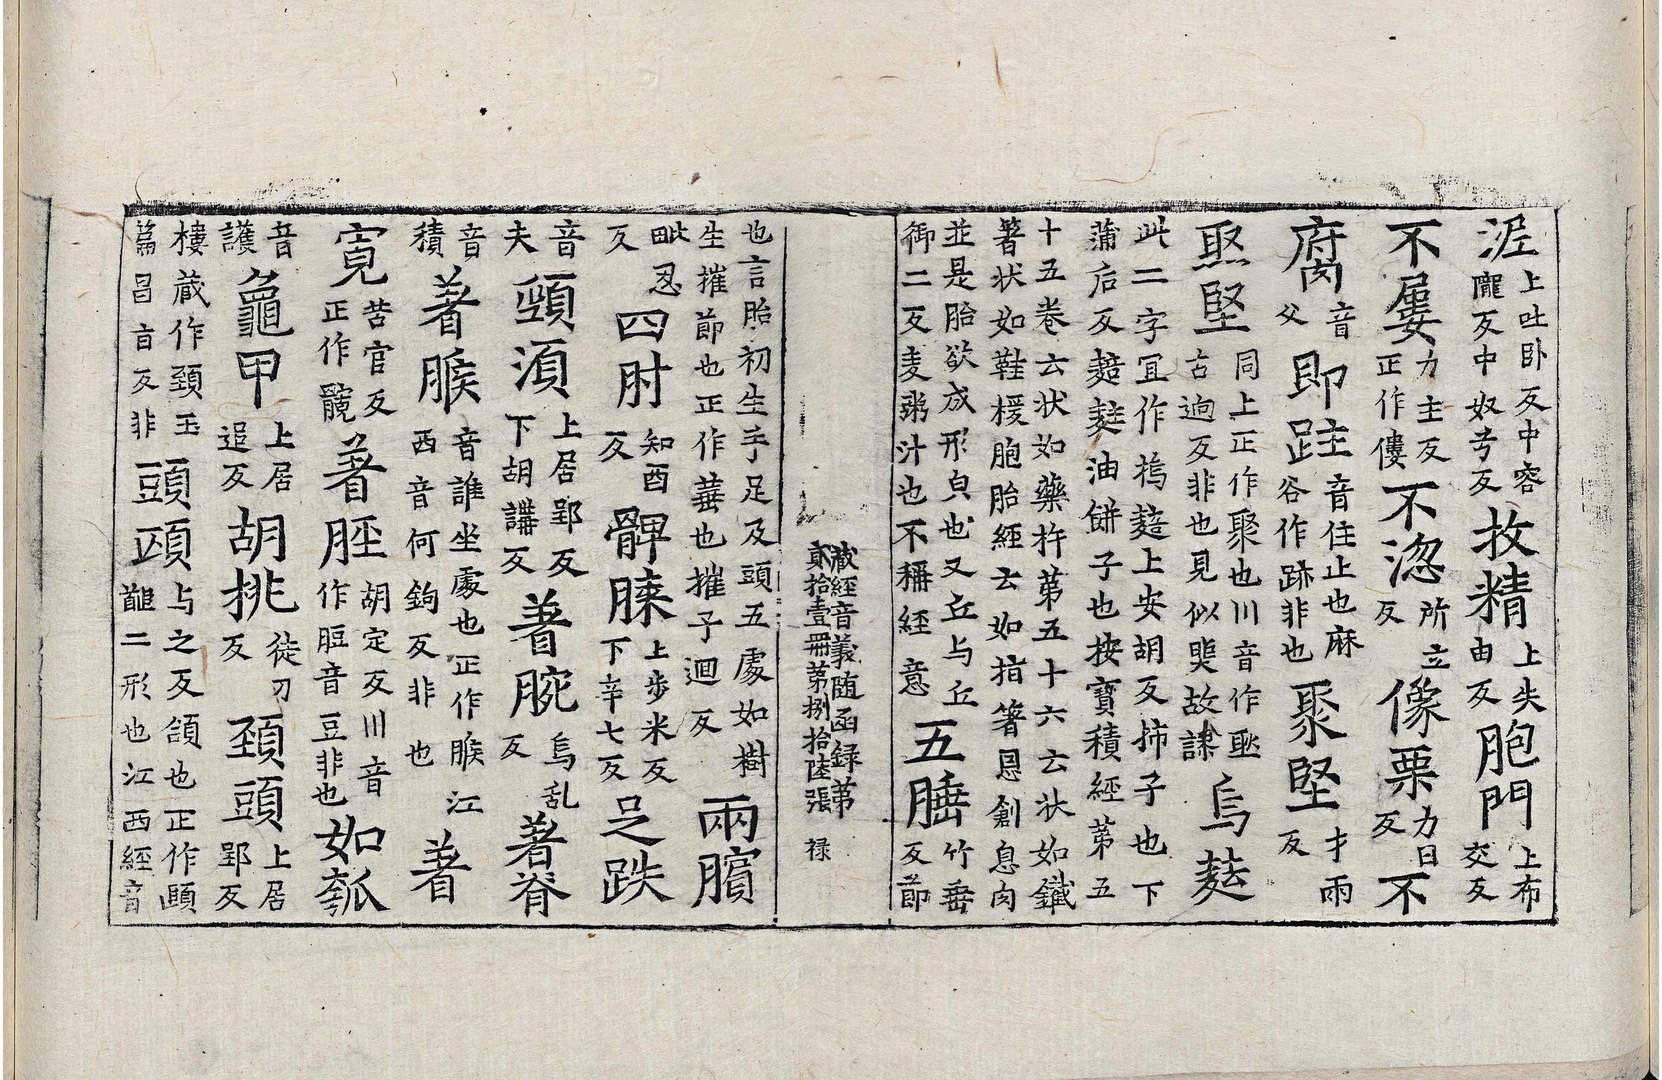 涺上吐卧反中容䆍反中奴兮反放精上失由反胞門上布交反
不屢力主反正作僂不㴓所立反像栗力日反不
腐音父即跓音住止也麻谷作跡非也聚堅才雨反
聚堅同上正作聚也川音作㘴古逈反非也見似巽故諫烏麮
此二字冝作䲧䴷上安胡反㧊子也下蒲后反䴺麮油餅子也按寶積經苐五
十五卷云状如藥杵苐五十六云状如鐵箸状如鞋楥胞胎經云如指箸㤙創息肉
並是胎欲成形㒵也又丘与丘御二反麦粥汁也不稱經意五腄竹垂反莭
藏經音義随函録苐貳拾壹冊苐捌拾陸張 禄
也言胎初生手足及頭五處如樹生摧莭也正作菙也摧子迴反兩臏
毗忍反四肘知酉反髀膝上步米反下辛七反足跌
音夫頸湏上居郢反下胡講反著腕烏乱反著脊
音積著膑音誰坐處也正作脽江西音何鉤反非也著
寛苦官反正作髖著脛胡定反川音作脰音豆非也如瓠
音護龜甲上居追反胡桃徒刀反頚頭上居郢反
樓蔵作頚玉篇昌盲反非頭頤与之反頷也正作頥䪼二形也江西經音